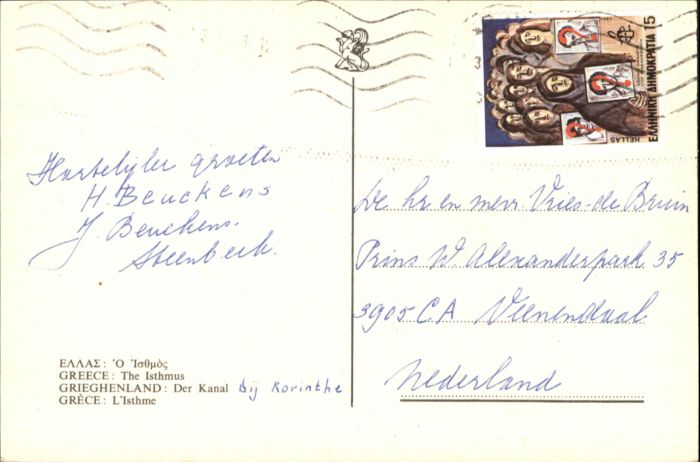 Hartelijke groeten
H. Beuckens
J. Beuckens-
Steenbeek.
ΕΛΛΑΣ: Ὁ Ἰσθμὸς
GREECE: The Isthmus
GRIEGHENLAND: Der Kanal bij Korinthe
GRÈCE: L'Isthme
ΕΛΛΗΝΙΚΗ ΔΗΜΟΚΡΑΤΙΑ 15
HELLAS
De hr en mevr Vries-de Bruin
Prins W Alexanderpark 35
3905 CA Veenendaal
Nederland